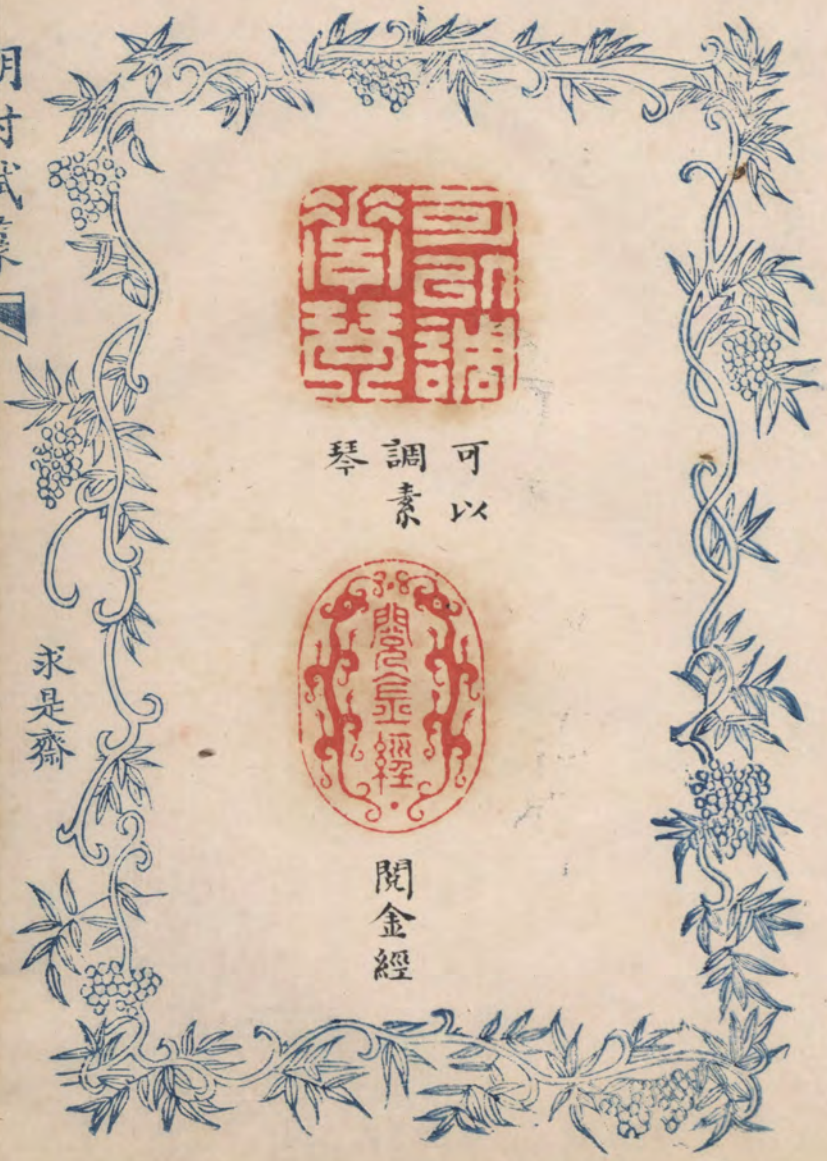 可以調
素琴
可以
調素
琴
閱金經
閱金經
求是齋